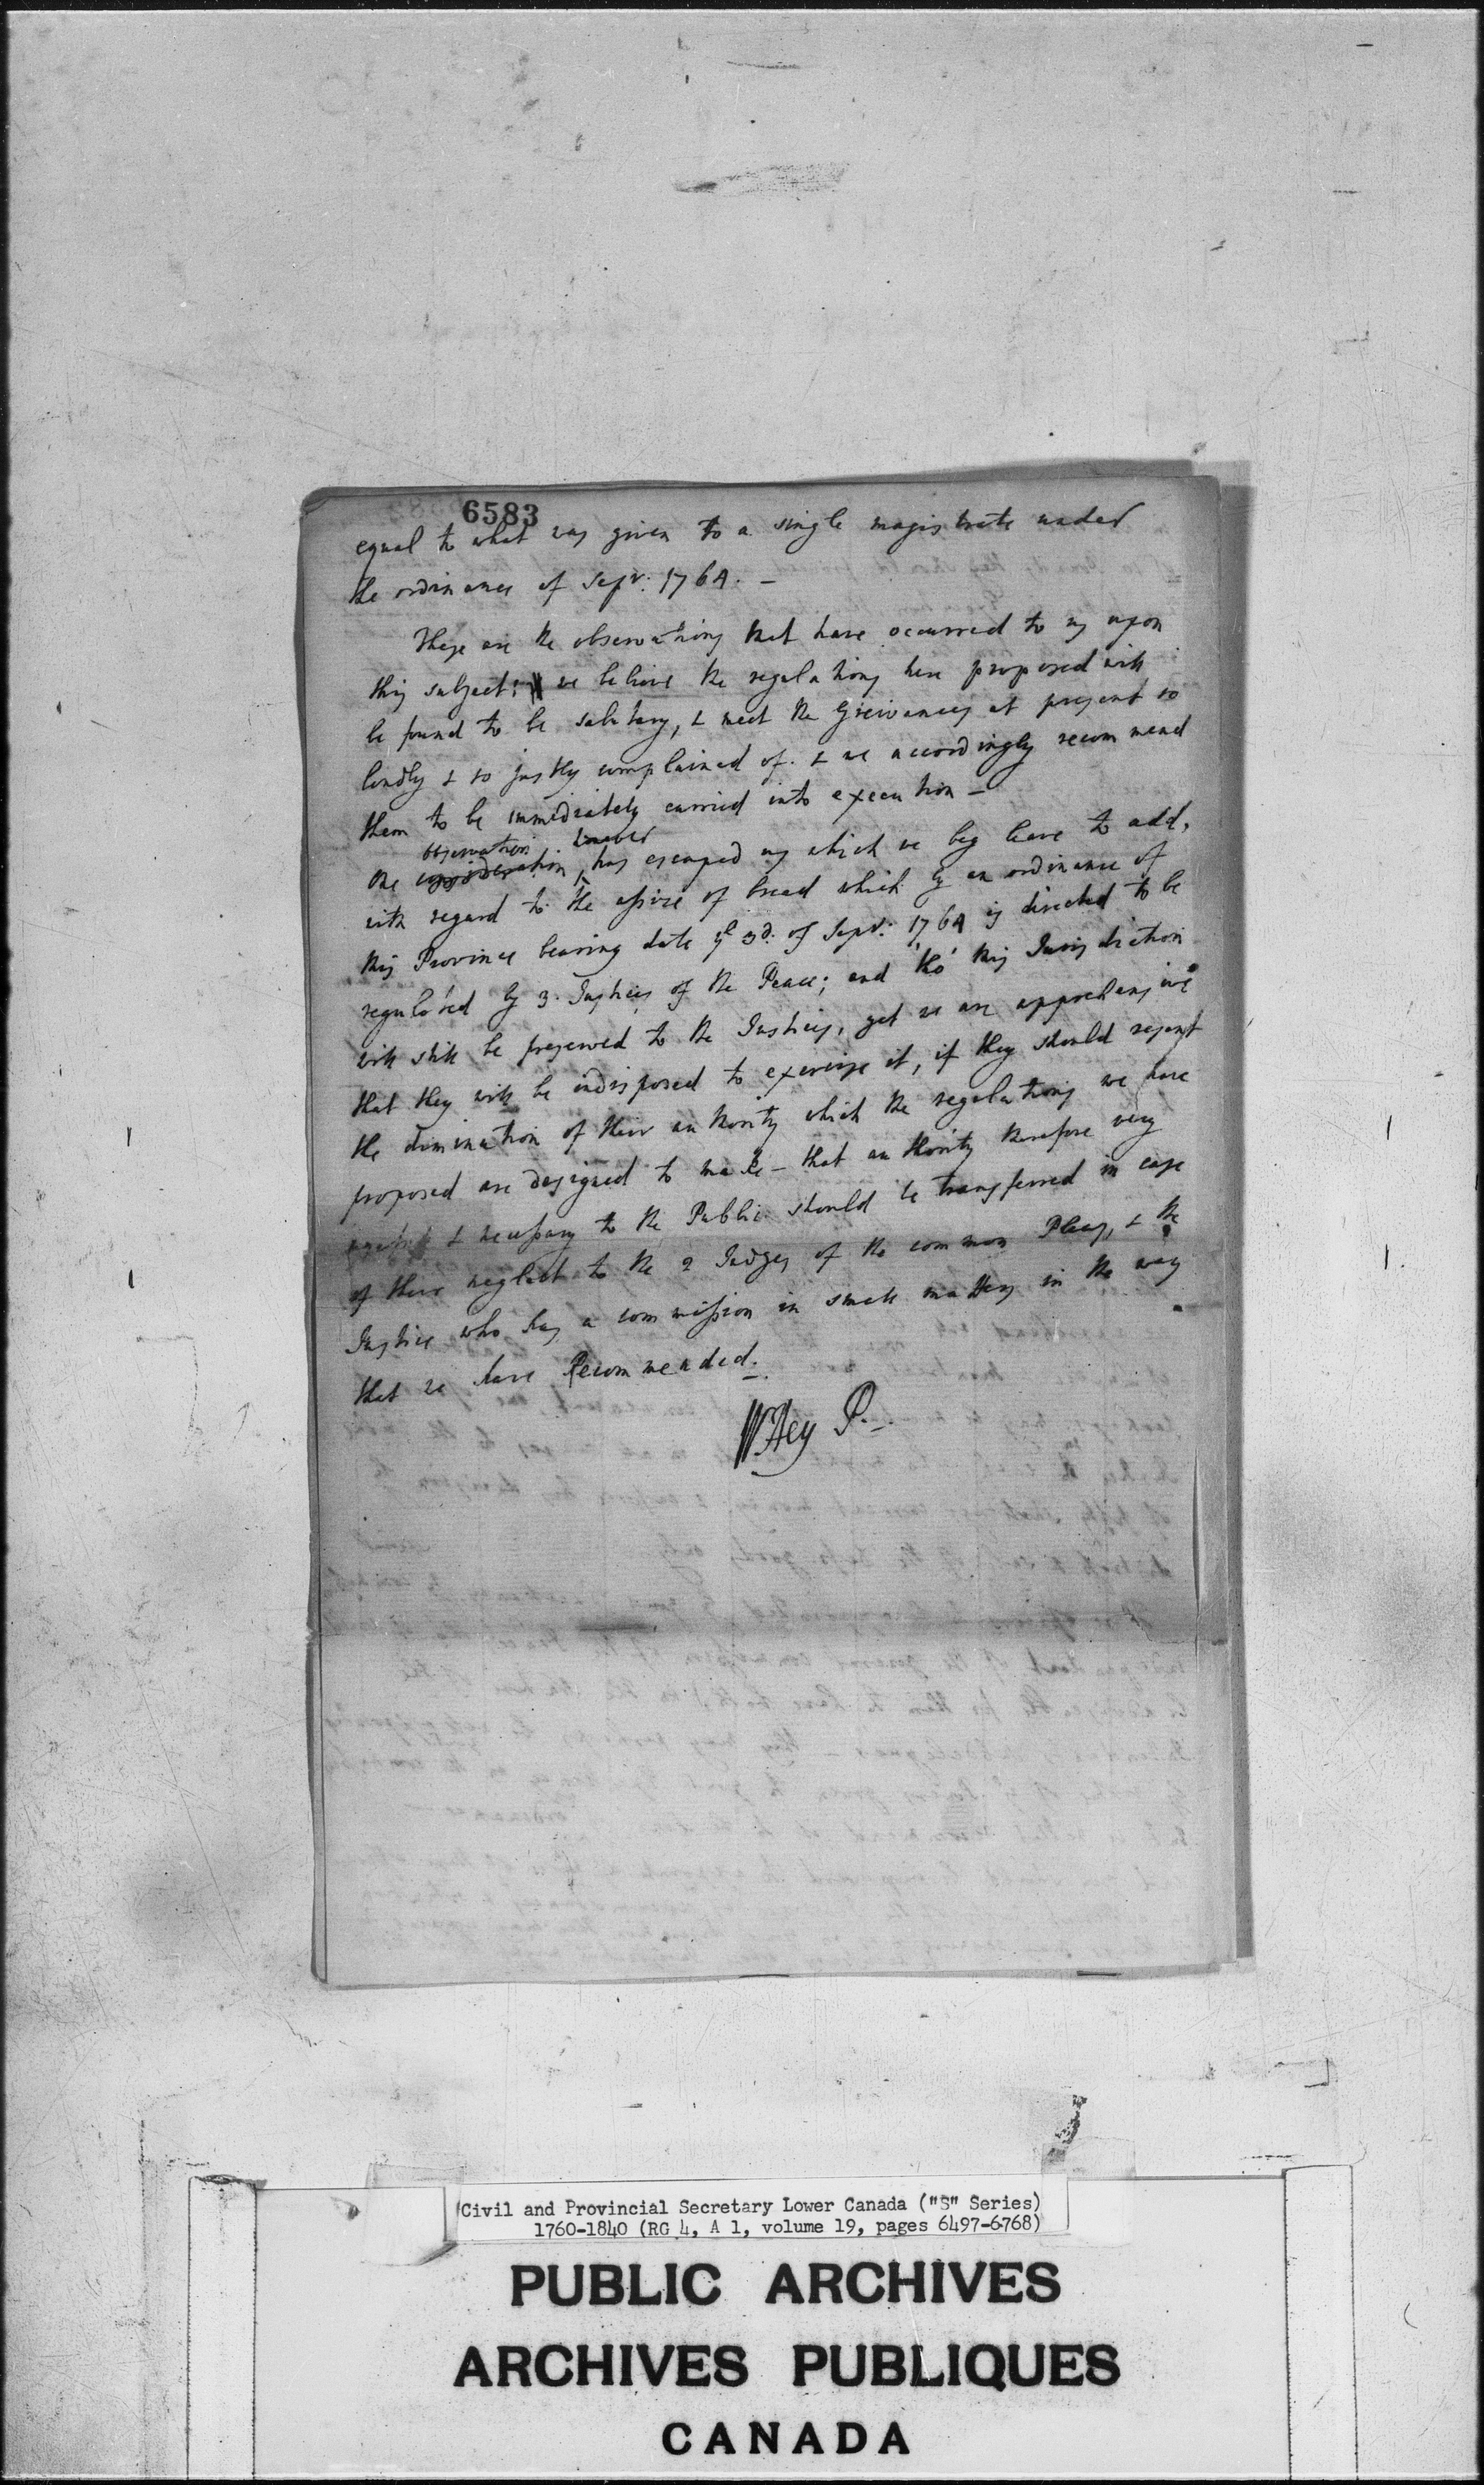 6583
equal to what was given to a single magistrate under
the ordinance of Sepr: 1764. –
These are the observations that have occurred to us upon
this subject; we believe the regulations here proposed will
be found to be salutary, & meet the Greivances at present so
loudly & so justly complained of. & we accordingly recommend
them to be immediately carried into execution –
observation however
One consideration, has escaped us which we beg leave to add,
with regard to the assize of bread which by an ordinance of
this Province bearing date ye 3d. of Sepr: 1764 is directed to be
regulated by 3. Justices of the Peace; and tho' this Jurisdiction
will still be preserved to the Justices, yet we are apprehensive
that they will be indisposed to exercise it, if they should resent
the diminution of their authority which the regulations we have
proposed are designed to make – that authority therefore very
& necessary to the Public should be transferred in case
of their neglect to the 2 Judges of the common Pleas, & the
Justice who has a commission in small matters in the way
that we have Recommended.
W: Hey P.
Civil and Provincial Secretary Lower Canada ("S" Series)
1760-1840 (RG 4, A 1, volume 19, pages 6497-6768)
PUBLIC ARCHIVES
ARCHIVES PUBLIQUES
CANADA